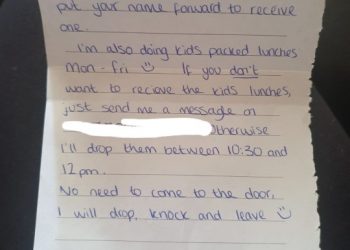 put your name forward to receive
one.
I'm also doing kids packed lunches
Mon - Fri ☺ If you don't
want to recieve the kids lunches,
just send me a message on
Otherwise
I'll drop them between 10:30 and
12pm.
No need to come to the door,
I will drop, knock and leave ☺